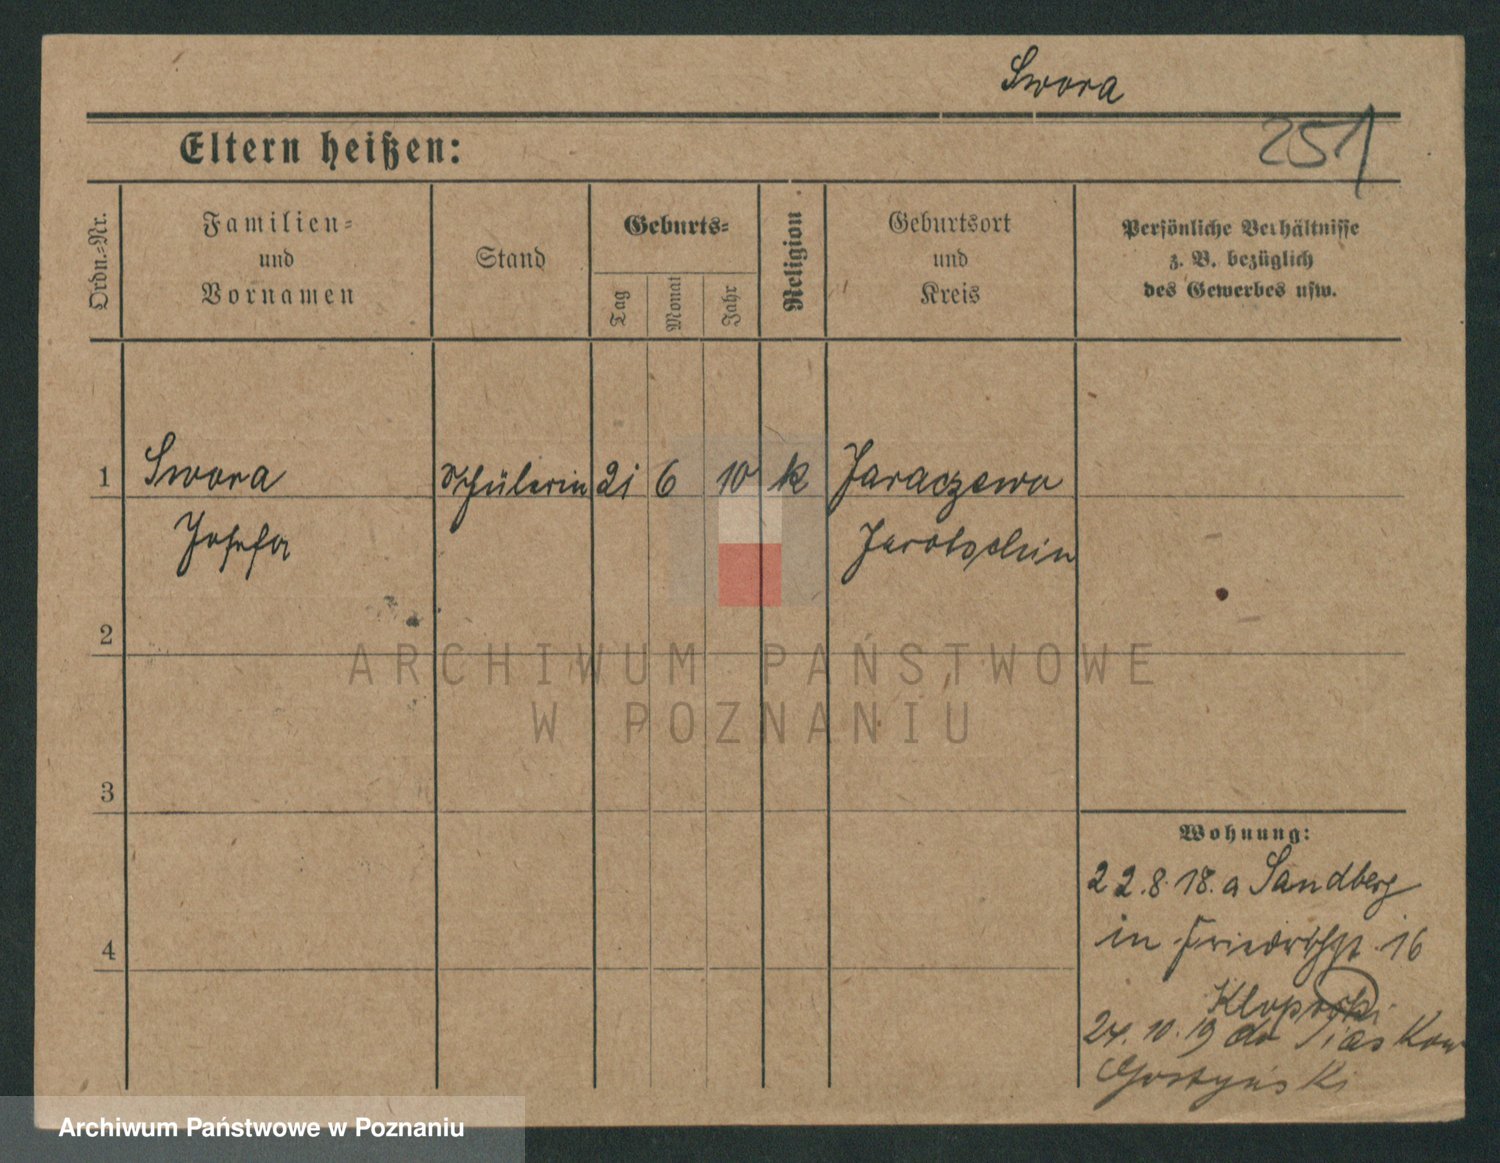 Swora
Eltern heißen:
251
Ordn.-Nr.
Familien-
und
Vornamen
Stand
Geburts-
Tag
Monat
Jahr
Religion
Geburtsort
und
Kreis
Persönliche Verhältnisse
z. B. bezüglich
des Gewerbes usw.
1 Swora Schülerin 21 6 10 k Jaraczewo
Josefa Jarotschin
2
ARCHIWUM PAŃSTWOWE
W POZNANIU
3
Wohnung:
22.8.18. a Sandberg
in Friedrichstr. 16
4
24.10.19 do Piaski
Gostyński
Archiwum Państwowe w Poznaniu